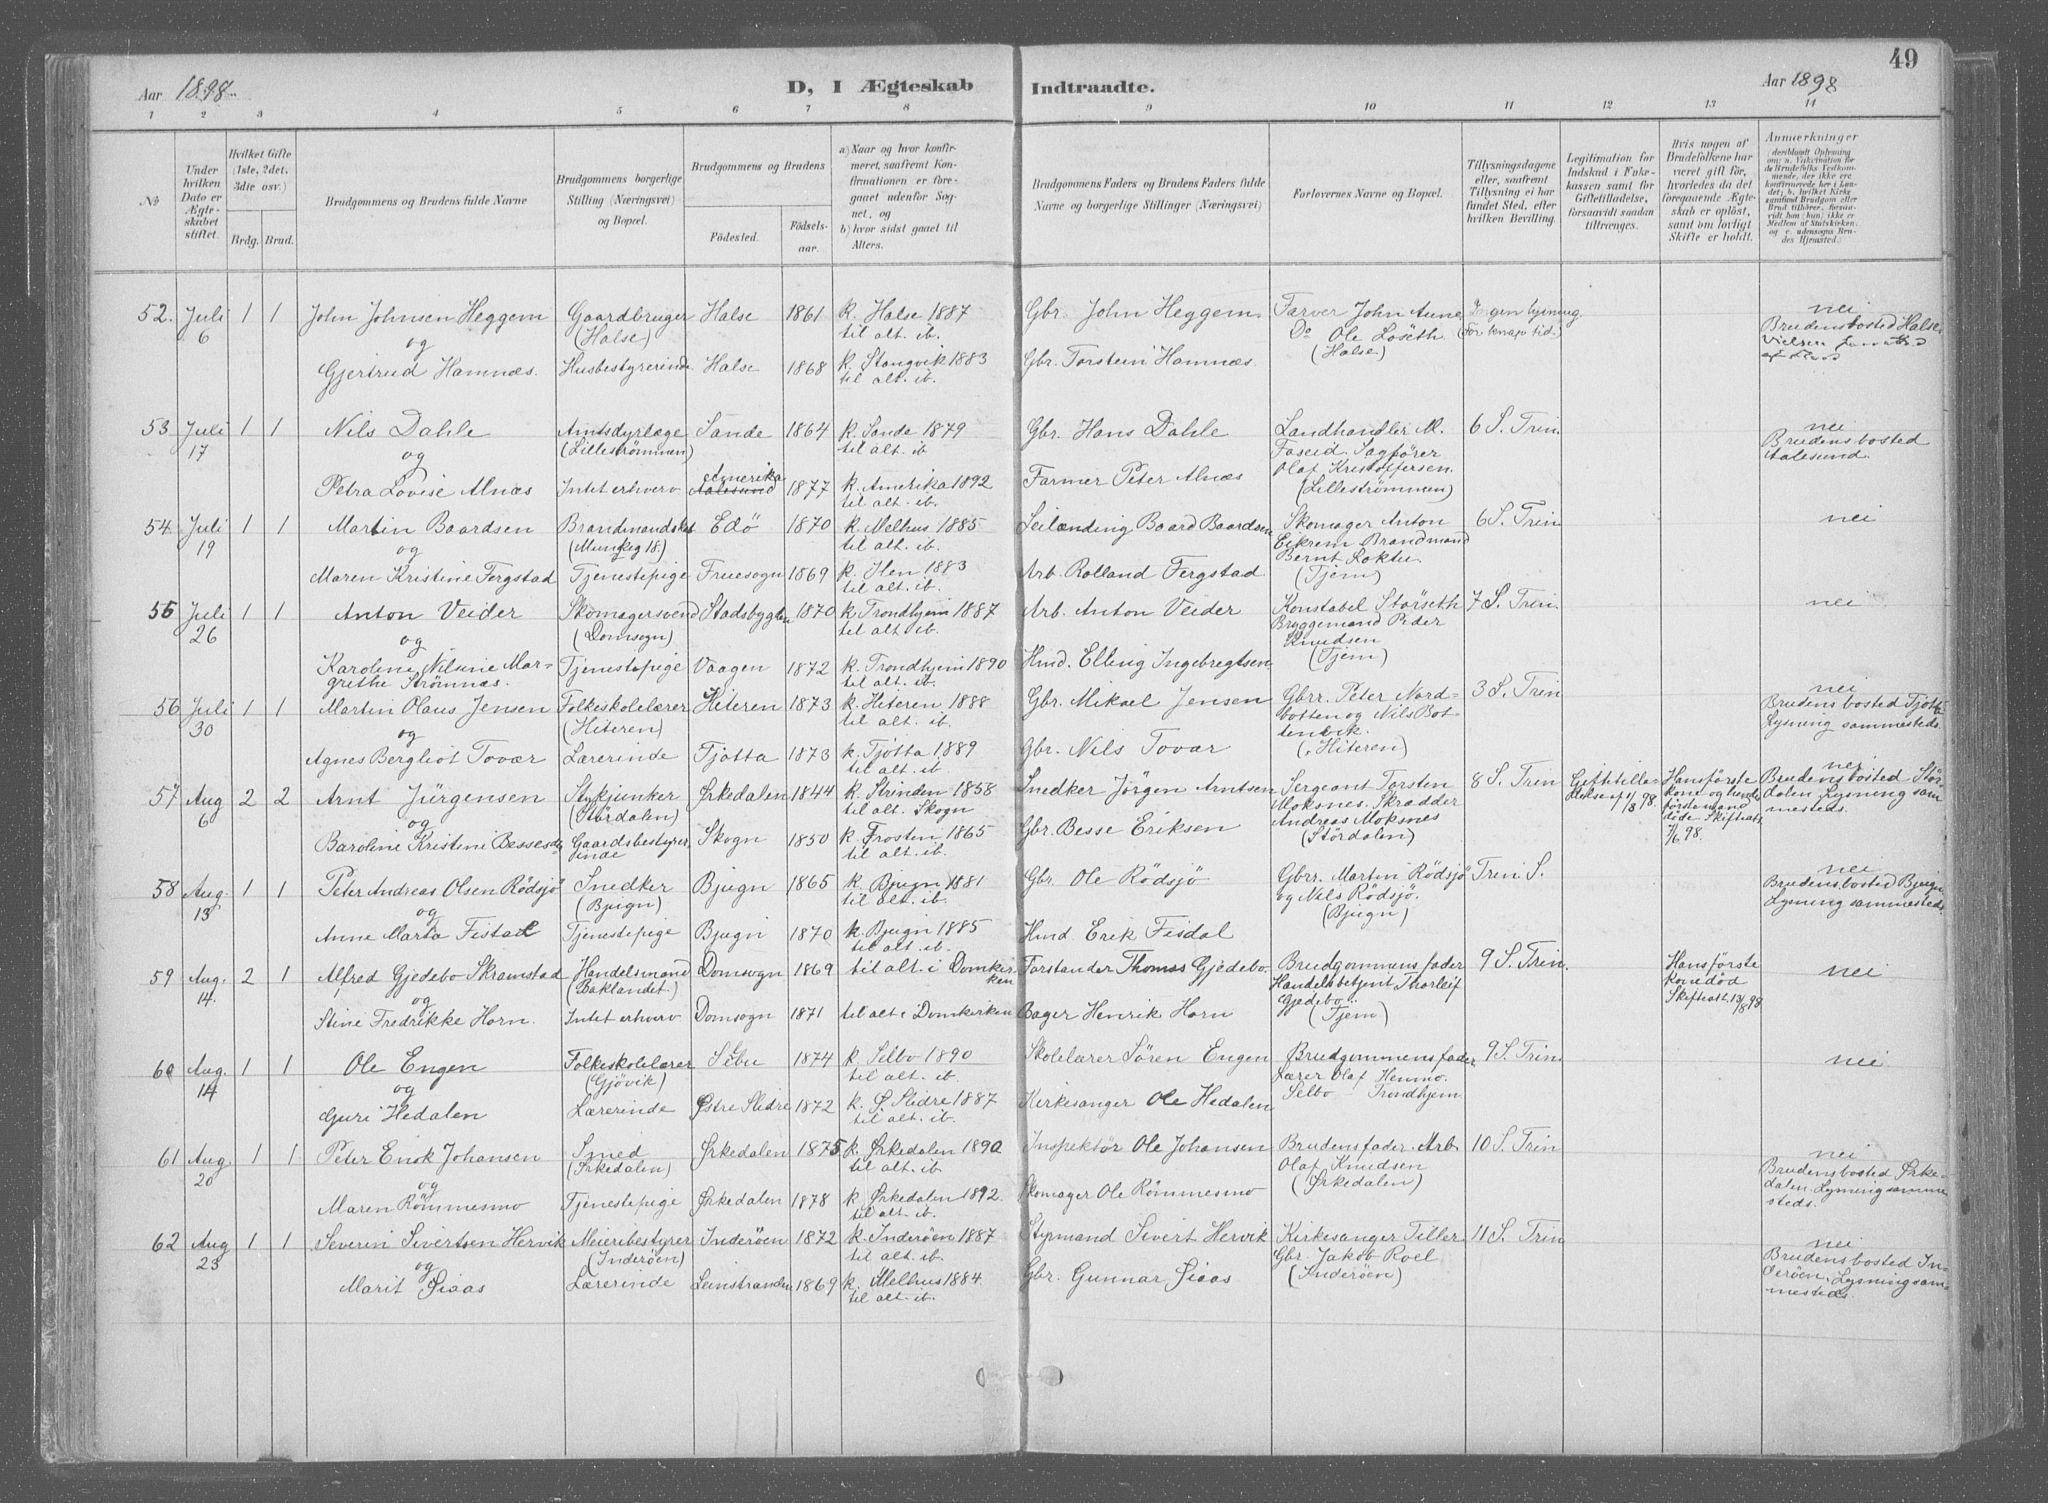 49
Aar 1898. D, I Ægteskab Indtraadte. Aar 1898
1 2 3 4 5 6 7 8 9 10 11 12 13 14
№
Under hvilken Dato er Ægteskabet stiftet.
Hvilket Gifte (1ste, 2det, 3die osv.)
Brdg. Brud.
Brudgommens og Brudens fulde Navne
Brudgommens borgerlige Stilling (Næringsvei) og Bopæl.
Brudgommens og Brudens
Fødested. Fødselsaar.
a) Naar og hvor konfirmeret, saafremt Konfirmationen er foregaaet udenfor Sognet, og
b) hvor sidst gaaet til Alters.
Brudgommens Faders og Brudens Faders fulde Navne og borgerlige Stillinger (Næringsvei)
Forlovernes Navne og Bopæl.
Tillysningsdagene eller, saafremt Tillysning ei har fundet Sted, efter hvilken Bevilling.
Legitimation for Indskud i Enkekassen samt for Giftetilladelse, forsaavidt saadan tiltrænges.
Hvis nogen af Brudefolkene har været gift før, hvorledes da det foregaaende Ægteskab er opløst, samt om lovligt Skifte er holdt.
Anmærkninger
52. Juli 6 1 1 John Johnsen Heggem Gaardbruger (Halse) Halse 1861 k. Halse 1887 til alt. ib. Gbr. John Heggem Farver John Aune Do Ole Løseth (Halse) Ingen lysning (For knap tid.) nei Brudens bosted Halse
og
Gjertrud Hamnæs. Husbestyrerinde Halse 1868 k. Stangvik 1883 til alt. ib. Gbr. Torstein Hamnæs.
53. Juli 17 1 1 Nils Dahle Amtsdyrlæge (Lillestrømmen) Sande 1864 k. Sande 1879 til alt. ib Gbr. Hans Dahle Landhandler M. Faseid Sagfører Olaf Kristoffersen. (Lillestrømmen) 6 S. Trin. nei Brudens bosted Aalesund.
og
Petra Lovise Alnæs Intet erhverv Aalesund Amerika 1877 k. Amerika 1892 til alt. ib. Farmer Peter Alnæs
54. Juli 19 1 1 Martin Baardsen Brandmandskst (Munkeg 18.) Edö 1870 k. Melhus 1885 til alt. ib. Leilænding Baard Baardsen Skomager Anton Eikrem Brandmand Bernt Loktu (Tjem) 6 S. Trin nei
og
Maren Kristine Fergstad Tjenestepige Fruesogn 1869 k. Hen 1883 til alt. ib. Arb. Rolland Fergstad
55 Juli 26 1 1 Anton Veider Skomagersvend (Domsogn) Stadsbygden 1870 k. Trondhjem 1887 til alt. ib. Arb. Anton Veider Konstabel Störseth Bryggemand Peder Knudsen (Tjem) 7 S. Trin. nei
og
Karoline Nilsine Margrethe Strömnæs. Tjenestepige Vaagen 1872 k. Trondhjem 1890 til alt. ib. Hmd. Elling Ingebregtsen
56 Juli 30 1 1 Martin Olaus Jensen Folkeskolelærer (Hiteren) Hiteren 1873 k. Hiteren 1888 til alt. ib. Gbr. Mikael Jensen Gbrr. Peter Nordbotten og Nils Bottenvik. (Hiteren) 3 S. Trin nei Brudens bosted Tjötta Lysning sammesteds.
og
Agnes Bergliot Tovær Lærerinde Tjötta 1873 k. Tjötta 1889 til alt. ib. Gbr. Nils Tovær
57 Aug 6 2 2 Arnt Jürgensen Stykjunker (Stördalen) Ørkedalen 1844 k. Strinden 1858 til alt. Skogn Snedker Jörgen Arntsen Sergeant Torsten Moksnes. Skrædder Andreas Moksnes (Stördalen) 8 S. Trin Giftetilladelse af 1/8 98. Hans förste kone og hendes förste mand döde Skifteatt. 7/6 98. nei Brudens bosted Stördalen, Lysning sammesteds.
og
Baroline Kristine Bessesd. Gaardsbestyrerinde Skogn 1850 k. Frosten 1865 til alt. ib. Gbr. Besse Eriksen
58 Aug. 13 1 1 Peter Andreas Olsen Rödsjö Snedker (Bjugn) Bjugn 1865 k. Bjugn 1881 til alt. ib. Gbr. Ole Rödsjö Gbrr. Martin Rödsjö og Nils Rödsjö. (Bjugn) Trin. S. nei Brudens bosted Bjugn Lysning sammesteds.
og
Anne Marta Fisdal Tjenestepige Bjugn 1870 k. Bjugn 1885 til alt. ib. Hmd. Erik Fisdal
59 Aug. 14. 2 1 Alfred Gjedebo Skramstad Handelsmand (Baklandet.) Domsogn 1869 til alt. i Domkirken Forstander Thomas Gjedebo Brudgommens fader Handelsbetjent Thorleif Gjedebo. (Tjem) 9 S. Trin. Hans förste kone död Skifteatt. 13/8 98. nei
og
Stine Fredrikke Horn. Intet erhverv Domsogn 1871 til alt i Domkirken Bager Henrik Horn
60 Aug. 14 1 1 Ole Engen Folkeskolelærer (Gjövik) Selbu 1874 k. Selbo 1890 til alt. ib. Skolelærer Sören Engen Brudgommens fader Lærer Olaf Hemmo. Selbo Trondhjem. 9 S. Trin nei
og
Guri Hedalen Lærerinde Østre Slidre 1872 k. Ø. Slidre 1887 til alt. ib. Kirkesanger Ole Hedalen
61 Aug 20 1 1 Peter Enok Johansen Smed (Ørkedalen) Ørkedalen 1875 k. Ørkedalen 1890 til alt. ib. Inspektör Ole Johansen Brudens fader. Arb. Olaf Knudsen (Ørkedalen) 10 S. Trin nei Brudens bosted Ørkedalen. Lysning sammesteds.
og
Maren Römmesmo Tjenestepige Ørkedalen 1878 k. Ørkedalen 1892. til alt. ib. Skomager Ole Römmesmo
62 Aug 23 1 1 Severin Sivertsen Hervik Meieribestyrer (Inderöen) Inderöen 1872 k. Inderöen 1887 til alt. ib. Styrmand Sivert Hervik Kirkesanger Tiller Gbr. Jakob Roel (Inderöen) 11 S. Trin nei Brudens bosted Inderöen. Lysning sammesteds.
og
Marit Øiaas Lærerinde Leinstranden 1869 k. Melhus 1884. til alt. ib. Gbr. Gunnar Øiaas